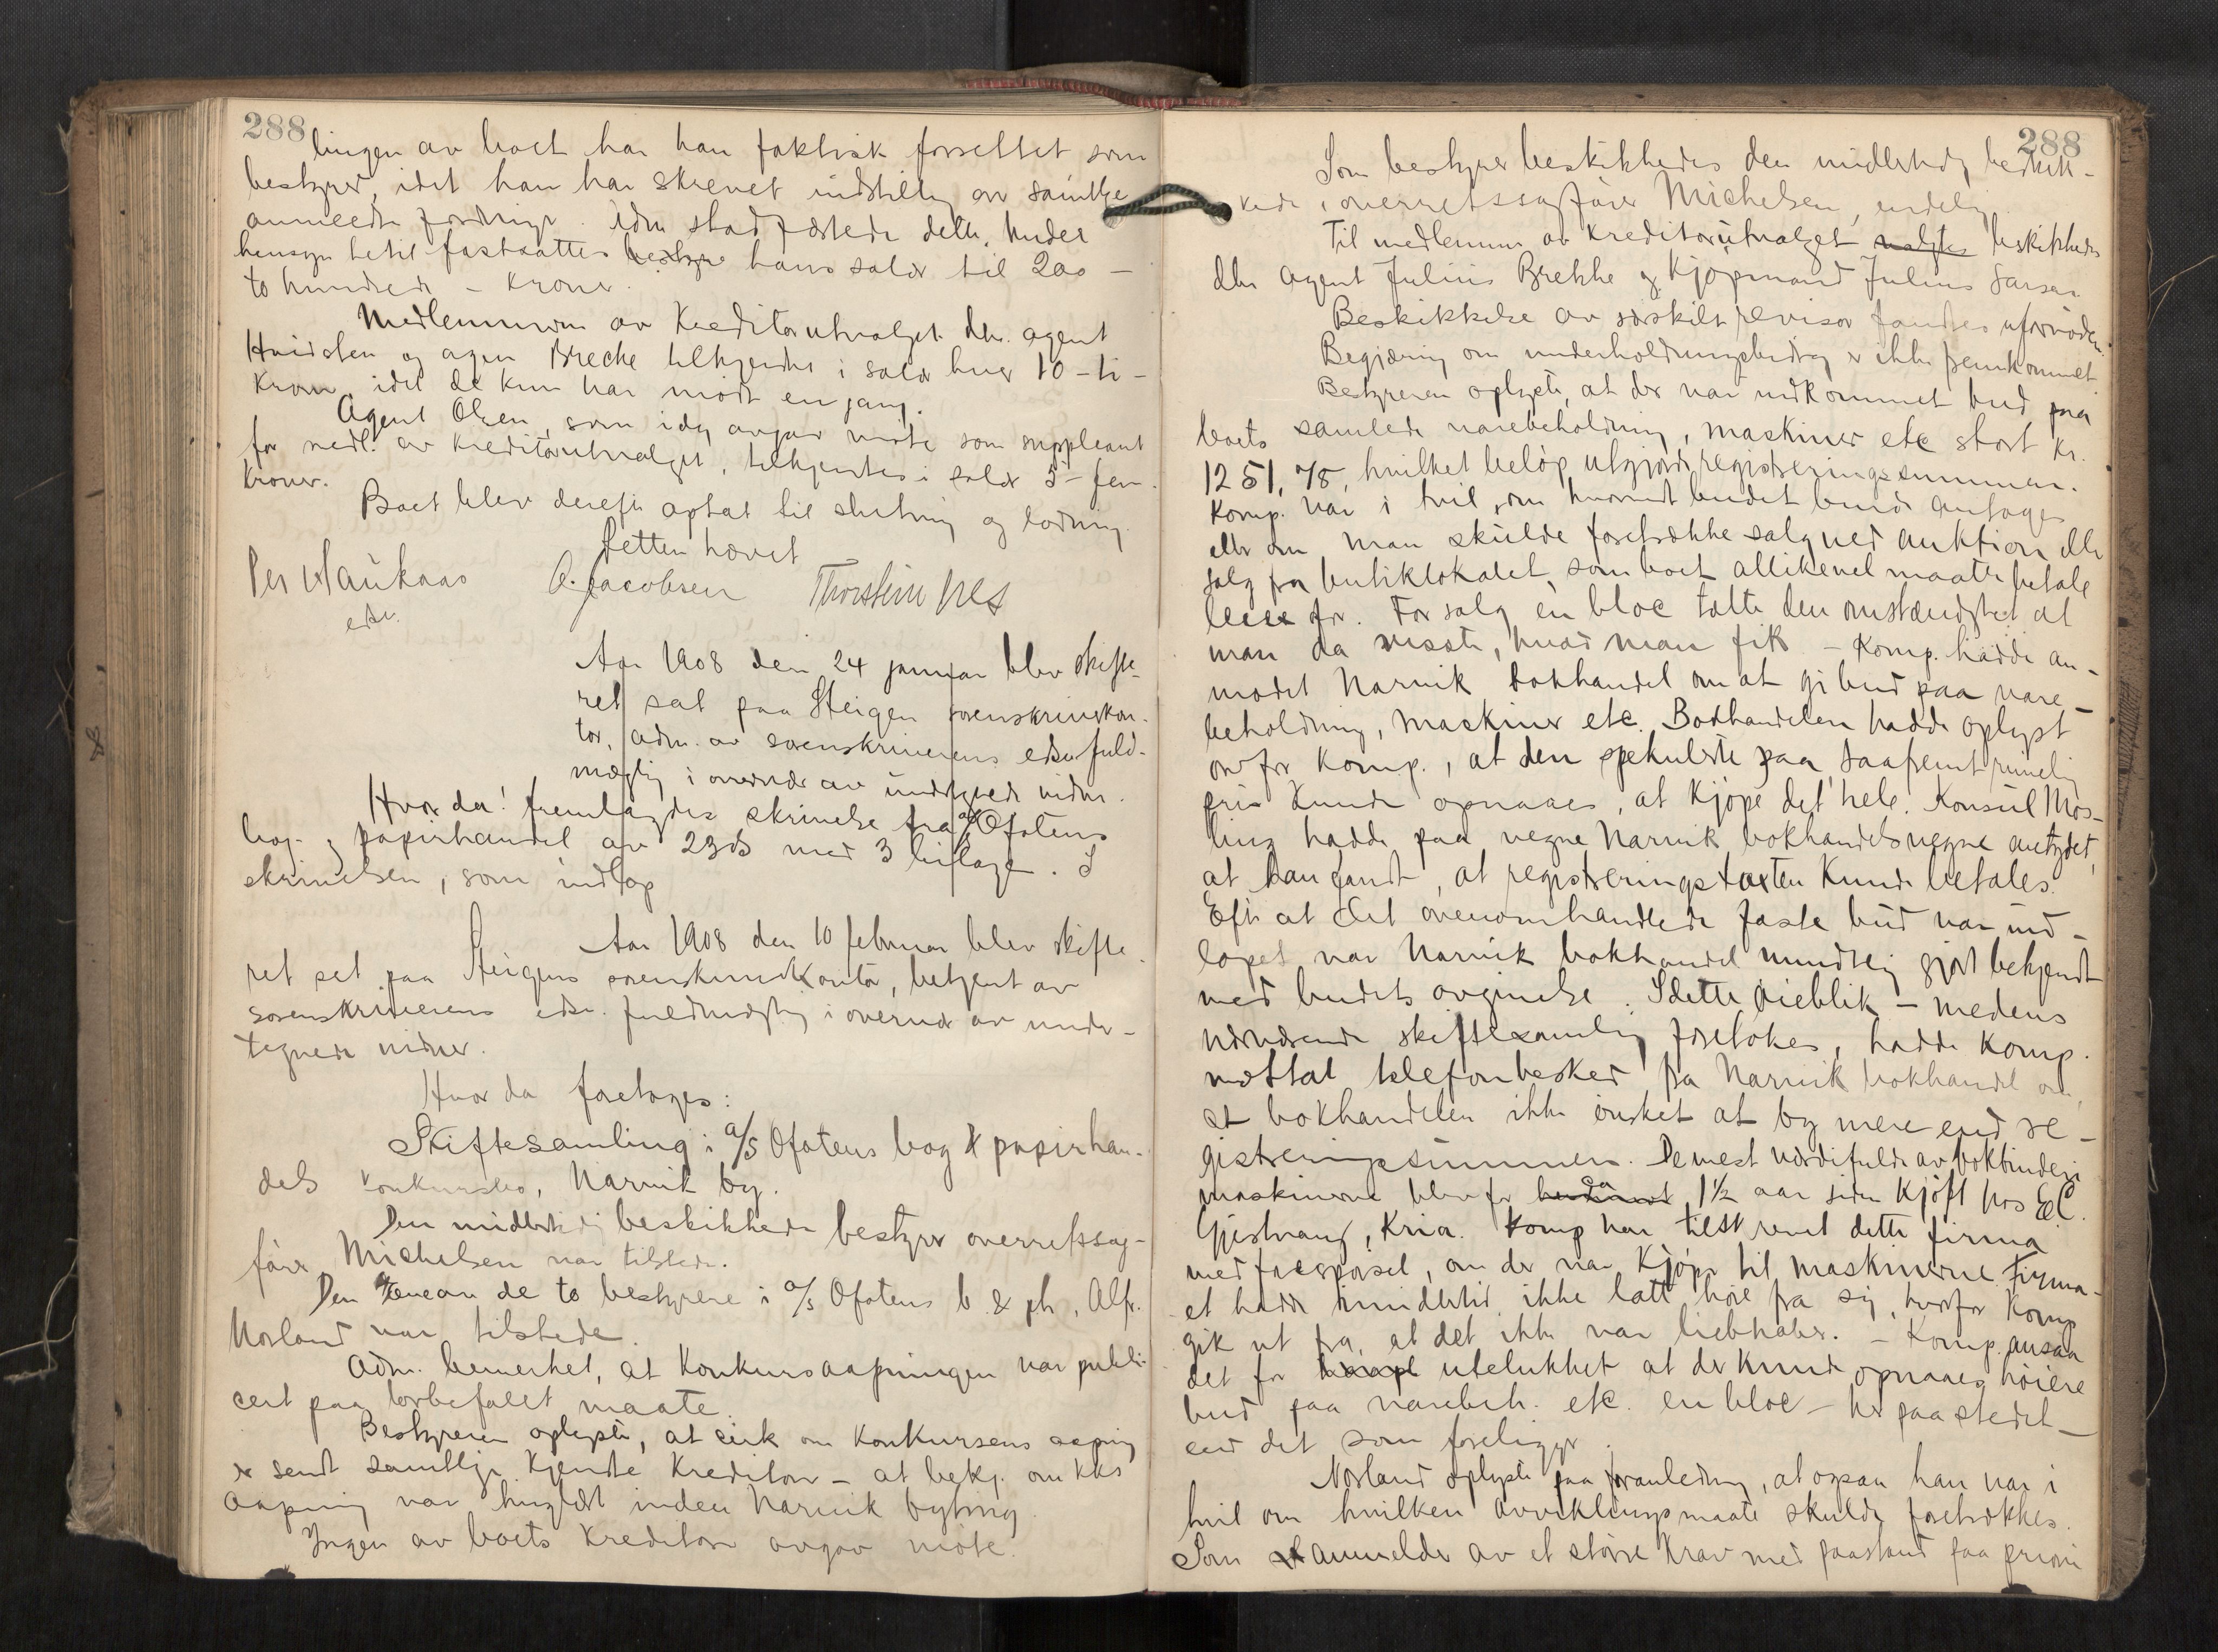 288
lingen av boet har han faktisk forsettet som
bestyrer, idet han har skrevet indstilling om samtlige
anmeldte fordringer. Adm. stadfæstede dette. Under
hensyn hertil fastsattes bestyre hans salær til 200 -
to hundrede - kroner.
Medlemmerne av kreditorutvalget dhr. agent
Hvidsten og agent Brecke tilkjendtes i salær hver 10 - ti -
kroner, idet de kun har mødt en gang.
Agent Olsen, som idag avgav møte som suppleant
for medl. av kreditorutvalget, tilkjentes i salær 5 - fem
kroner.
Boet blev derefter optat til slutning og lodning.
Retten hævet
Per Haukaas A. Jacobsen Thorstein Nes
edsv.
Aar 1908 den 24 januar blev skifte-
ret sat paa Steigen sorenskriverkon-
tor, adm. av sorenskriverens edsv. fuld-
mægtig i overvær av undertegnede vidner.
Hvor da! fremlagdes skrivelse fra a/s Ofotens
bog- og papirhandel av 23ds med 3 bilage. I
skrivelsen, som indtog
Aar 1908 den 10 februar blev skifte-
ret sat paa Steigens sorenskriverkontor, betjent av
sorenskriverens edsv. fuldmægtig i overvær av under-
tegnede vidner.
Hvor da foretoges:
Skiftesamling i a/s Ofotens bog & papirhan-
dels konkursbo, Narvik by.
Den midlertidig beskikkede bestyrer overretssag-
fører Michelsen var tilstede.
Den ene av de to bestyrere i a/s Ofotens b. & ph., Alfr.
Norland var tilstede.
Adm. bemerket, at konkursaapningen var publi-
cert paa lovbefalet maate.
Bestyreren oplyste, at cirk om konkursens aapning
er sendt samtlige kjendte kreditorer - at bekj. om kks
aapning var kundgjort inden Narvik bytng.
Ingen av boets kreditorer avgav møte.
288
Som bestyrer beskikkedes den midlertidig beskik-
kede, overretssagfører Michelsen, endelig.
Til medlemmer av kreditorutvalget valgtes beskikkedes
dhr agent Julius Brekke og kjøpmand Julius Larsen.
Beskikkelse av særskilt revisor fandtes ufornøden.
Begjæring om underholdningsbidrag er ikke fremkommet.
Bestyreren oplyste, at der var indkommet bud paa
boets samlede varebeholdning, maskiner etc stort kr.
1251,78, hvilket beløp utgjorde registreringssummen.
Komp. var i tvil, om hvorvidt budet burde antages
eller om man skulde foretrække salg ved auktion eller
salg fra butiklokalet, som boet allikevel maatte betale
leie for. For salg en bloc talte den omstændighet at
man da visste, hvad man fik - Komp. hadde an-
modet Narvik bokhandel om at gi bud paa vare-
beholdning, maskiner etc. Bokhandelen hadde oplyst
overfor Komp., at den spekulerte paa, saafremt rimelig
pris kunde opnaaes, at kjøpe det hele. Konsul Mos-
ling hadde paa vegne Narvik bokhandels vegne antydet,
at han fandt, at registreringstaxten kunde betales.
Efter at det ovenomhandlede faste bud var ind-
løpet var Narvik bokhandel mundtlig gjort bekjendt
med budets avgivelse. I dette øieblik - medens
nærværende skiftesamling foretokes, hadde komp.
mottat telefonbesked fra Narvik bokhandel om,
at bokhandelen ikke ønsket at by mere end re-
gistreringssummen. De mest værdifulde av bokbinderi
maskinerne blev for ca 1½ aar siden kjøpt hos E C.
Gjestvang, Kria. Komp har tilskrevet dette firma
med forespørsel, om der var kjøper til maskinerne. Firma-
et hadde imidlertid ikke latt høre fra sig, hvorfor Komp
gik ut fra, at det ikke var liebhaber. - Komp. ansaa
det for utelukket at der kunde opnaaes høiere
bud paa varebeh. etc. en bloc - her paa stedet -
end det som foreligger.
Norland oplyste paa foranledning, at ogsaa han var i
tvil om hvilken avviklingsmaate skulde foretrækkes.
Som anmelder av et større krav med paastand paa priori